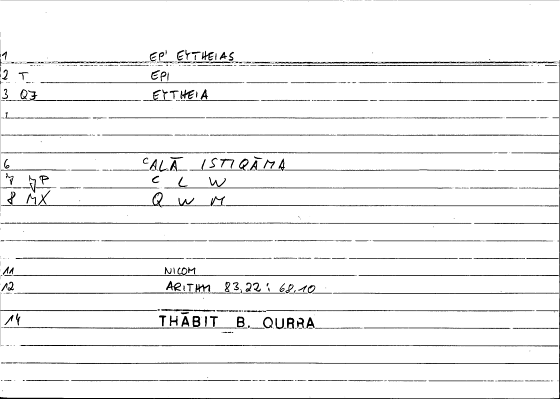 1 EP' EYTHEIAS
2 T EPI
3 QJ EYTHEIA
6 ᶜALĀ ISTIQĀMA
7 NP C L W
8 MX Q W M
11 NICOM
12 ARITHM 83,22 : 68,10
14 THĀBIT B. QURRA